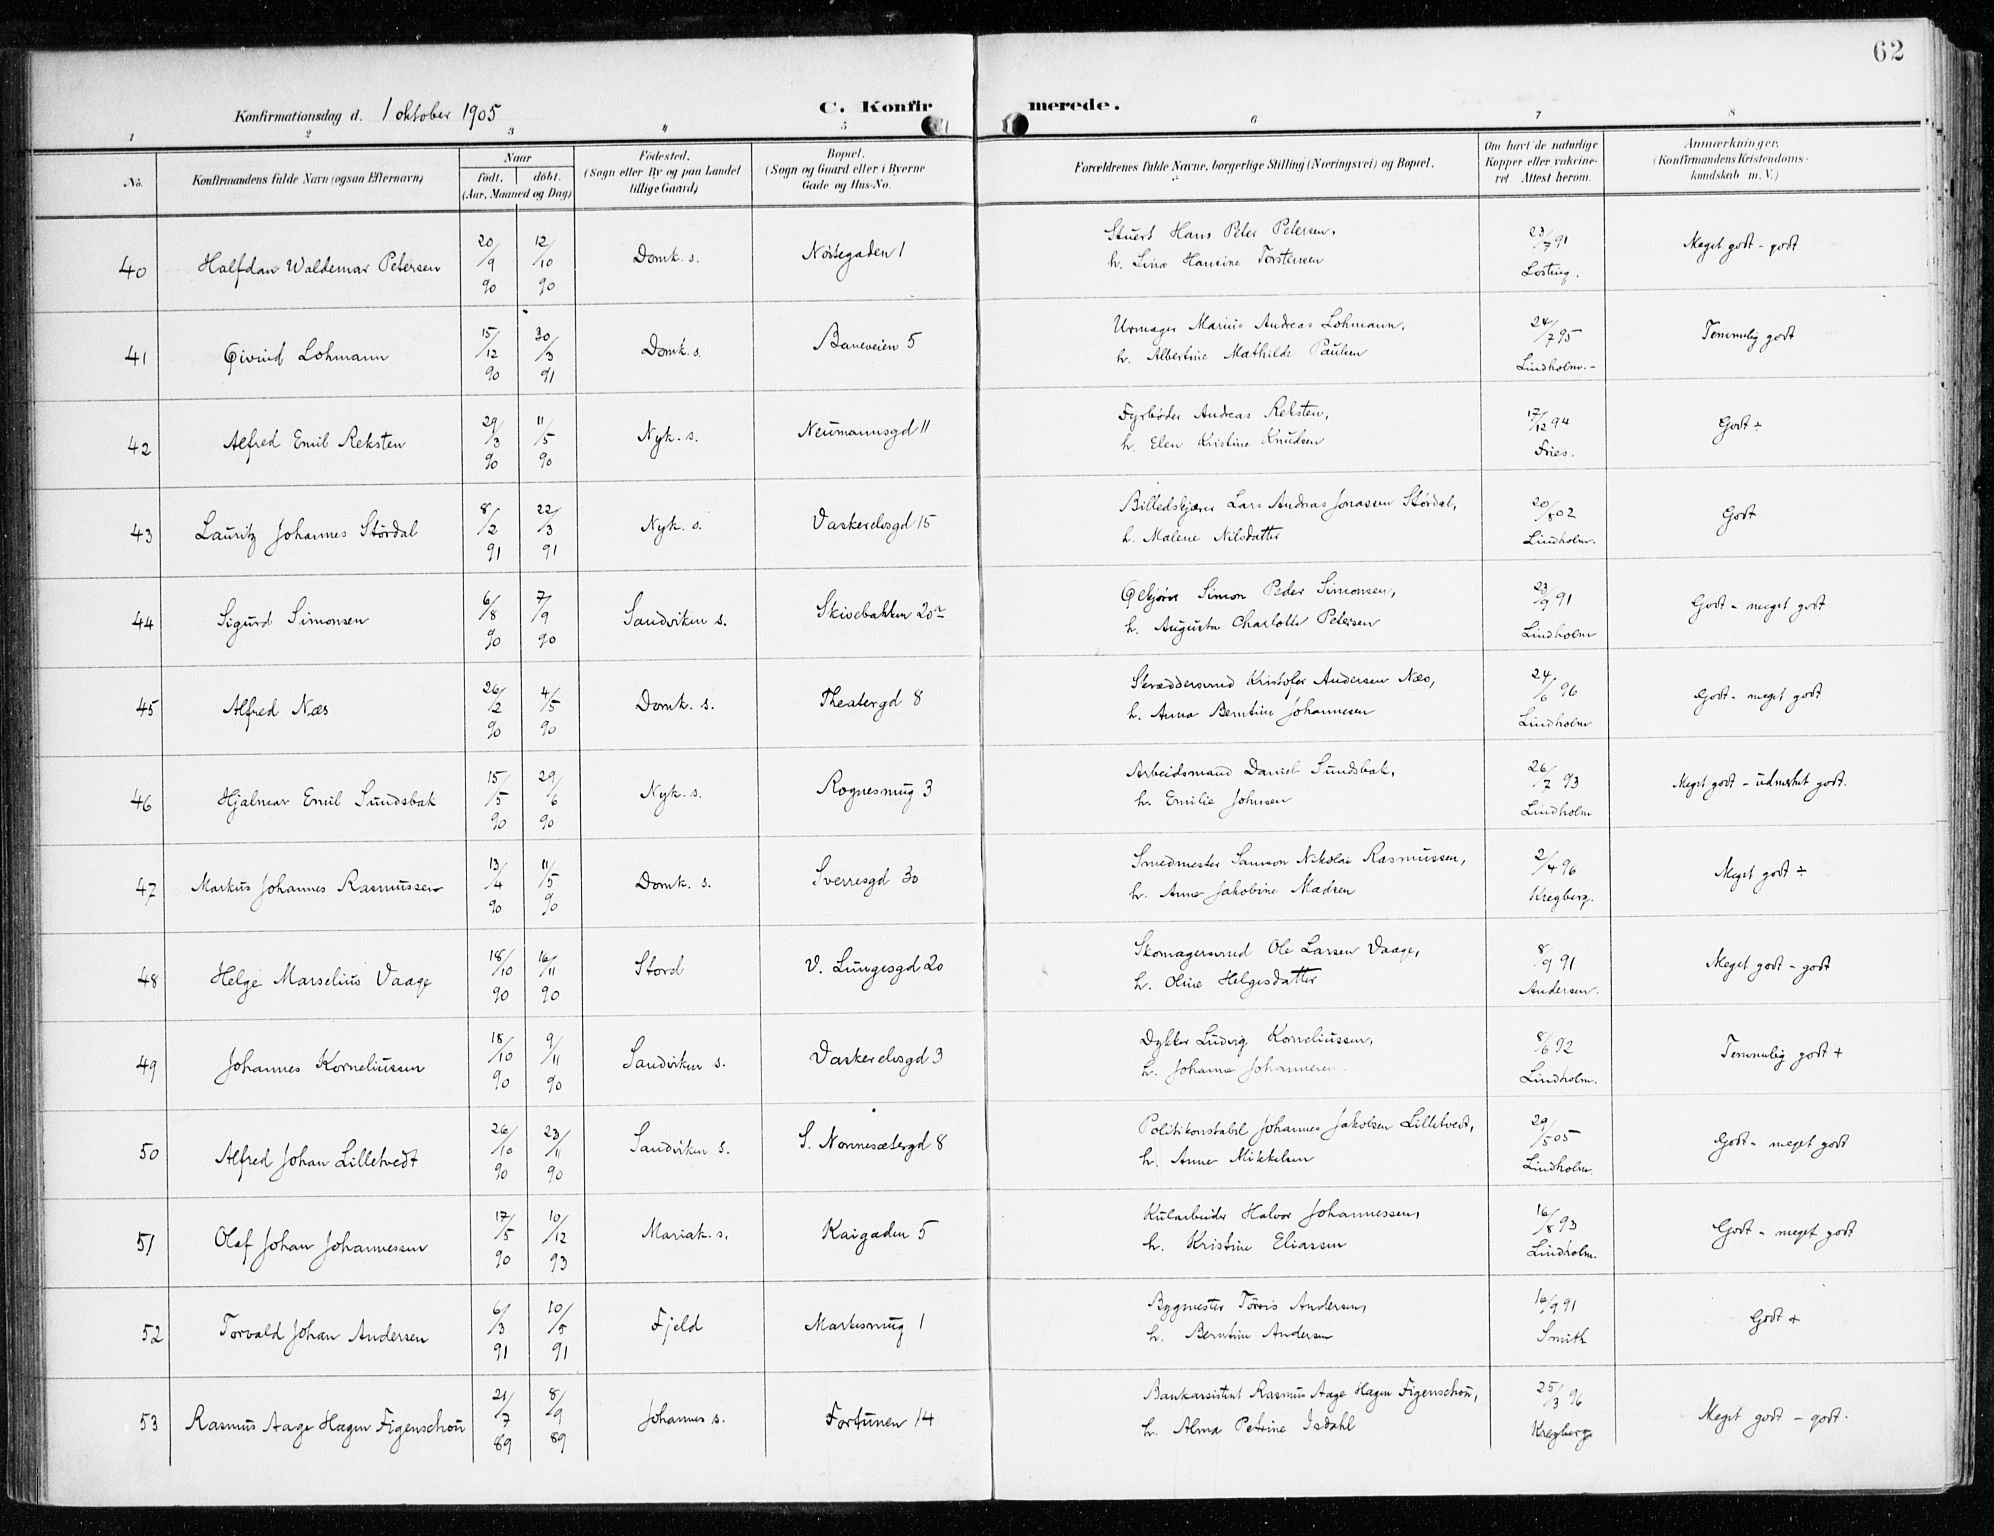 62
Konfirmationsdag d. 1 oktober 1905
C. Konfirmerede.
1 2 3 4 5 6 7 8
No. Konfirmandens fulde Navn (ogsaa Efternavn) Naar født. døbt. (Aar, Maaned og Dag) Fødested. (Sogn eller By og paa Landet tillige Gaard) Bopæl. (Sogn og Gaard eller i Byerne Gade og Hus-No. Forældrenes fulde Navne, borgerlige Stilling (Næringsvei) og Bopæl. Om havt de naturlige Kopper eller vakcineret Attest herom. Anmærkninger. (Konfirmandens Kristendomskundskab m. V.)
40 Halfdan Waldemar Petersen 20/9 90 12/10 90 Domk. s. Nøstegaden 1 Stuert Hans Peter Petersen, h. Lina Hansine Torstensen 23/7 91 Meget godt - godt
41 Øivind Lohmann 15/12 90 30/3 91 Domk. s. Baneveien 5 Urmager Marius Andreas Lohmann, h. Albertine Mathilde Paulsen 24/7 95 Lindholm. Temmelig godt
42 Alfred Emil Reksten 29/3 90 11/5 90 Nyk. s. Neumannsgd 11 Fyrbøder Andreas Reksten, h. Elen Kristine Knudsen 17/12 94 Fries. Godt ÷
43 Lauritz Johannes Størdal 8/2 91 22/3 91 Nyk. s. Vaskerelvsgd 15 Billedskjærer Lars Andreas Jonassen Størdal, h. Malene Nilsdatter 20/8 02 Lindholm. Godt
44 Sigurd Simonsen 6/8 90 7/9 90 Sandviken s. Skivebakken 20 Simon Peder Simonsen, h. Augusta Charlotte Petersen 23/9 91 Lindholm Godt - meget godt
45 Alfred Næs 26/2 90 4/5 90 Domk. s. Theatergd 8 Skræddersvend Kristofer Andersen Næs, h. Anna Berntine Johannesen 24/6 96 Lindholm Godt - meget godt
46 Hjalmar Emil Sundsbak 15/5 90 29/6 90 Nyk. s. Rognesmug 3 Arbeidsmand Daniel Sundsbak, h. Emilie Johnsen 26/7 93 Lindholm Meget godt - udmerket godt.
47 Markus Johannes Rasmussen 13/4 90 11/5 90 Domk. s. Sverresgd 30 Smedmester Samson Nikolai Rasmussen, h. Anna Jakobine Madsen 2/4 96 Kregberg. Meget godt ÷
48 Helge Marselius Vaage 18/10 90 16/11 90 Stord V. Lungesgd 20 Skomagersvend Ole Larsen Vaage, h. Oline Helgesdatter 8/9 91 Andersen. Meget godt - godt
49 Johannes Korneliussen 18/10 90 9/11 90 Sandviken s. Vaskerelvsgd 3 Dykker Ludvig Korneliussen, h. Johanna Johannesen. 8/6 92 Lindholm. Temmelig godt +
50 Alfred Johan Lilletvedt 26/10 90 23/11 90 Sandviken s. S. Nonnesætergd 8 Politikonstabel Johannes Jakobsen Lilletvedt, h. Anna Mikkelsen 29/5 05 Lindholm. Godt - meget godt
51 Olaf Johan Johannessen 17/5 90 10/12 93 Mariak. s. Kaigaden 5 Kularbeider Halvor Johannessen, h. Kristine Eliassen 16/8 93 Lindholm. Godt - meget godt
52 Torvald Johan Andersen 6/3 91 10/5 91 Fjeld Markesmug 1 Bygmester Tørris Andersen, h. Berntine Andersen 16/9 91 Smith Godt +
53 Rasmus Aage Hagen Figenschou 21/7 89 8/9 89 Johannes s. Fortunen 14 Bankassistent Rasmus Aage Hagen Figenschou, h. Alma Petrine Isdahl 25/3 96 Kregberg Meget godt - godt.